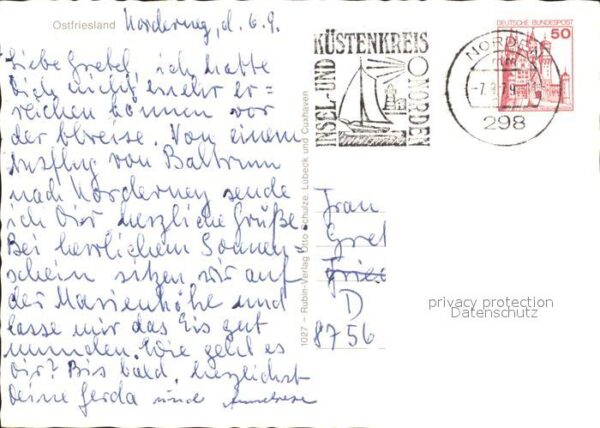 Ostfriesland
Norderney, d. 6.9.
Liebe Gretel, ich hatte
Dich nicht mehr er=
reichen können vor
der Abreise. Von einem
Ausflug von Baltrum
nach Norderney sende
ich Dir herzliche Grüße.
Bei herrlichem Sonnen-
schein sitzen wir auf
der Marienhöhe und
lasse mir das Eis gut
munden. Wie geht es
Dir? Bis bald, herzlichst
Deine Gerda und
1027 - Rubin-Verlag Otto Schulze, Lübeck und Cuxhaven
INSEL-UND
KÜSTENKREIS
NORDEN
NORDEN
-7.9.79
298
DEUTSCHE BUNDESPOST
50
Frau
Gret
D
8756
privacy protection
Datenschutz